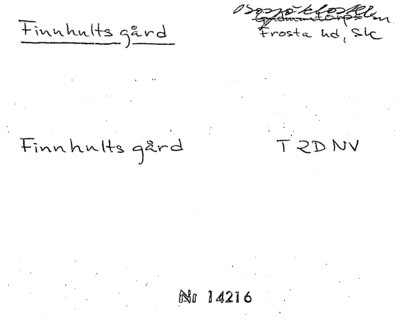 Finnhults gård
Bosjökloster
Frosta hd, Sk
Finnhults gård T 2D NV
Nr 14216